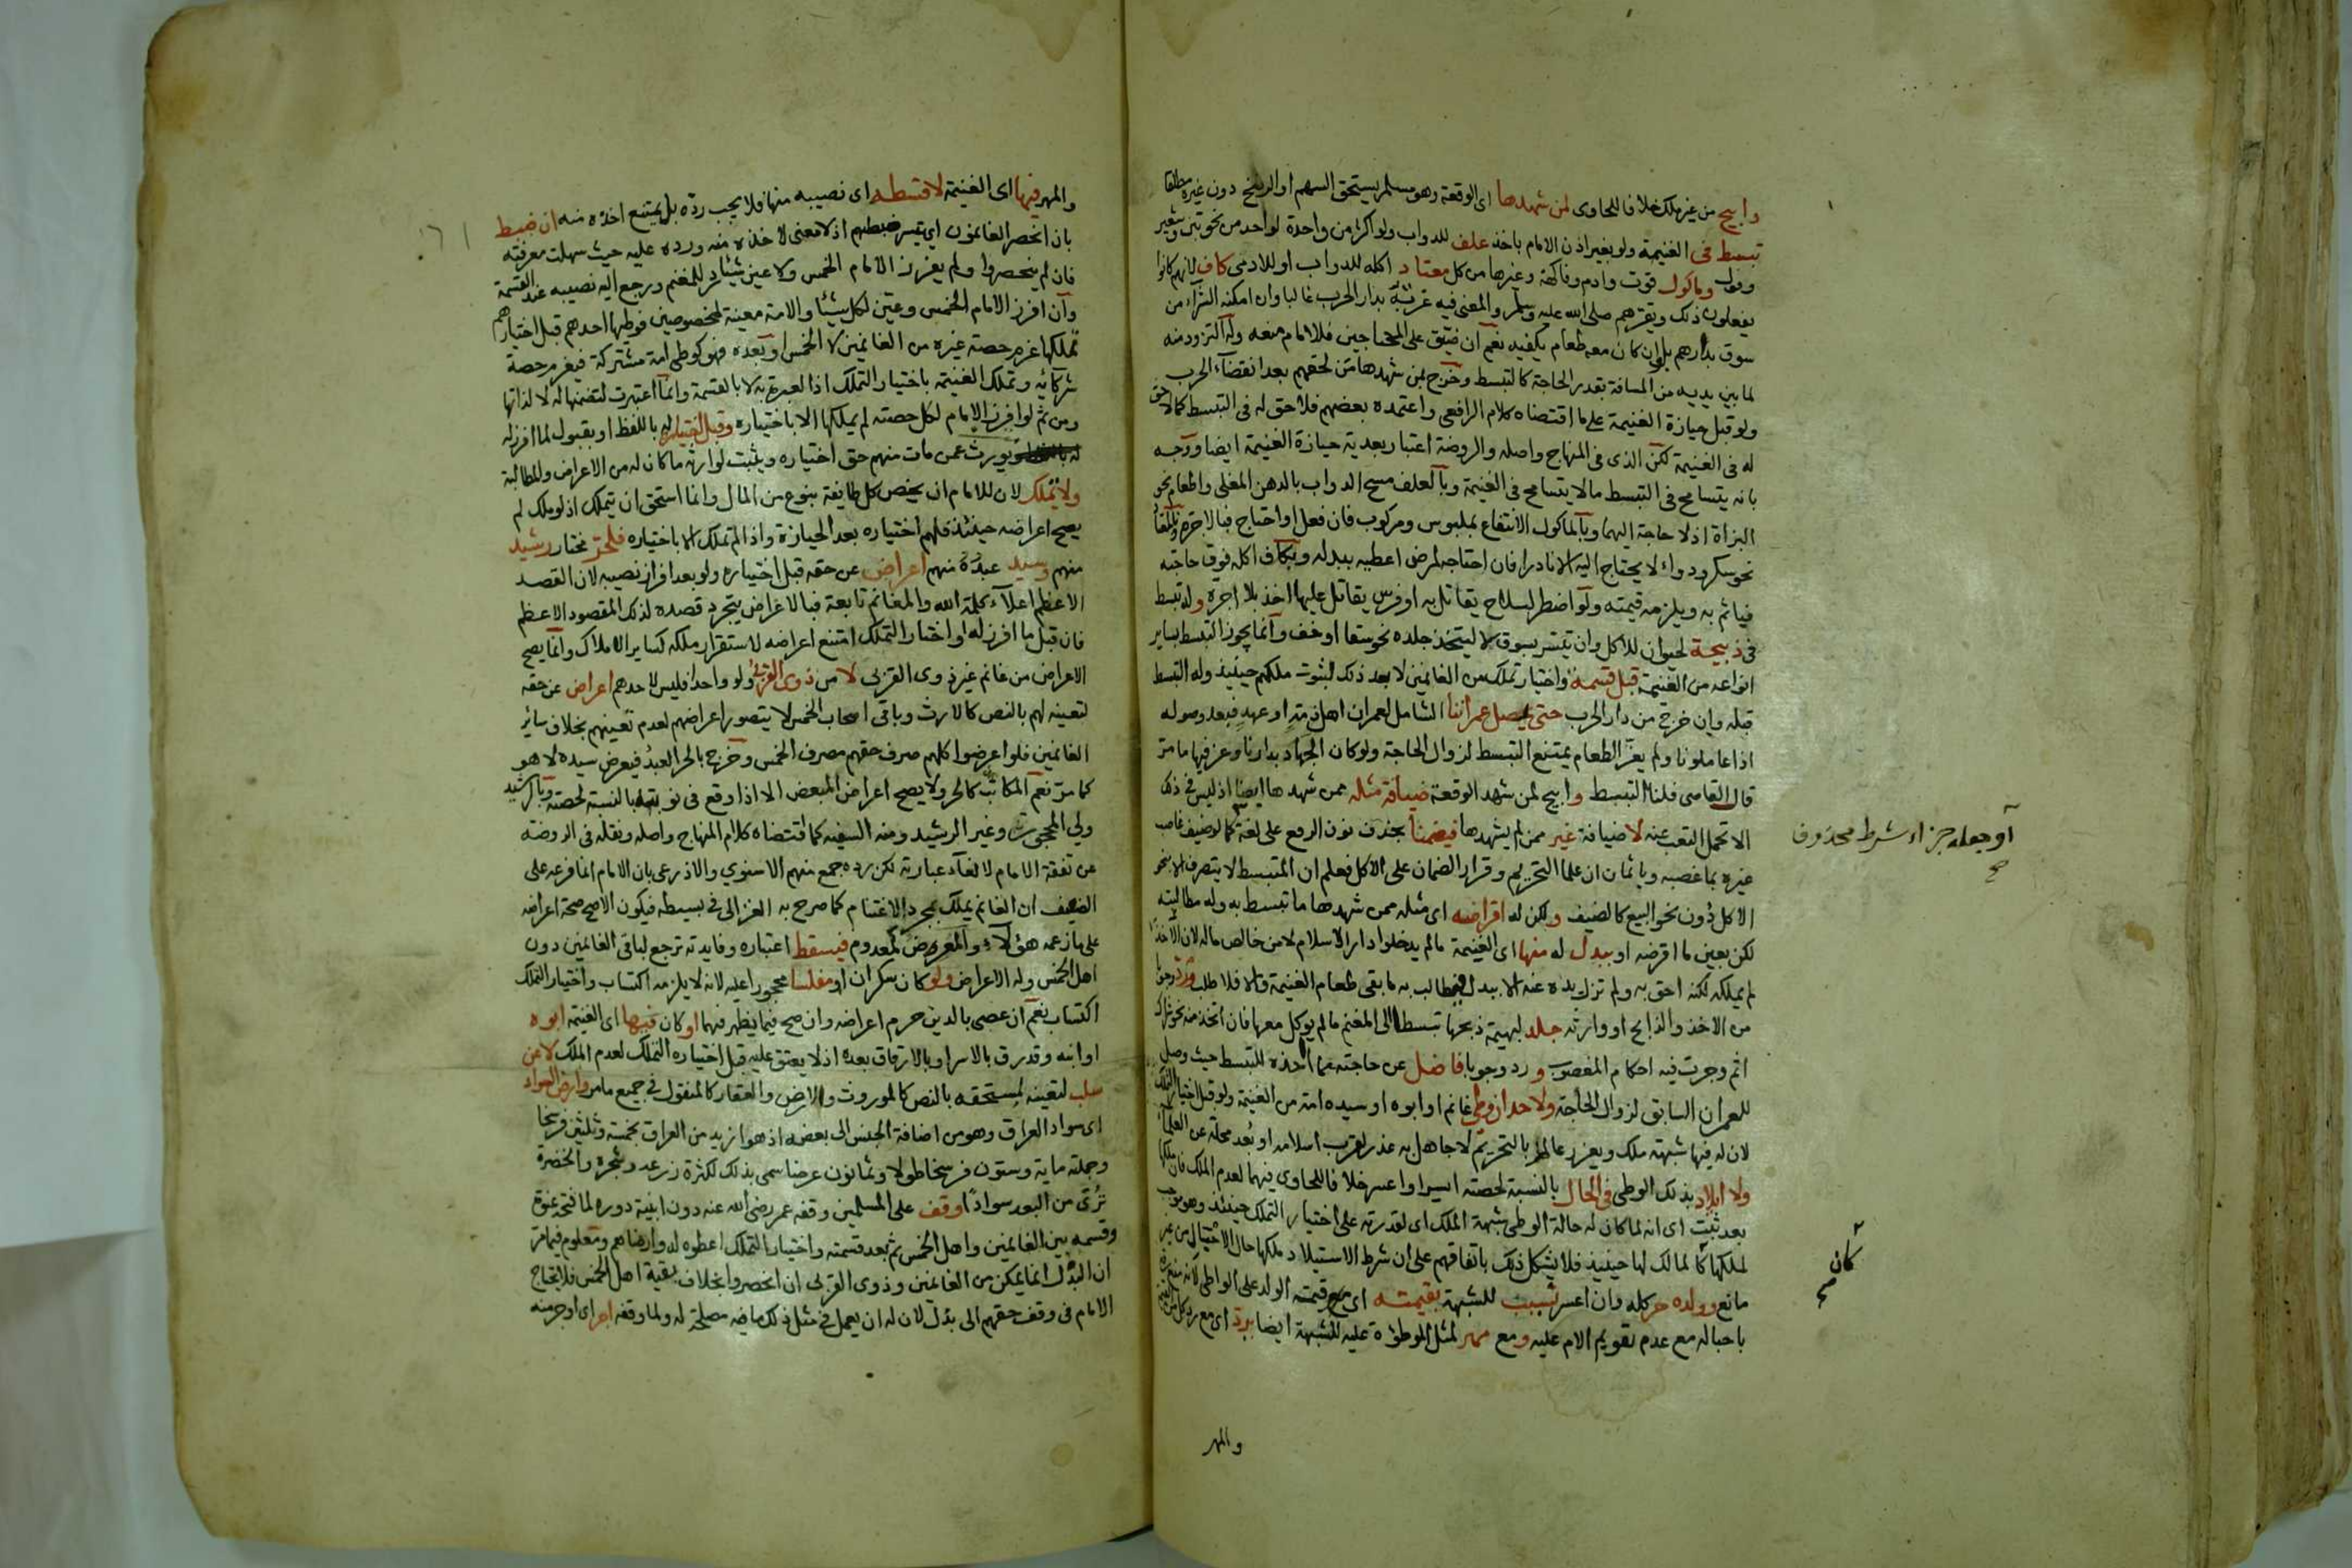 وابيح من غير ملك خلافا للحاوى لمن شهدها اى الوقعة وهو مسلم يستحق السهم او الرضخ دون غيره مطلقا
تبسط فى الغنيمة ولو بغير اذن الامام باخذ علف للدواب ولو اكثر من واحدة لواحد من نحو تبن وشعير
وفول وماكول قوت وادم وفاكهة وغيرها من كل معتاد اكله للدواب او للادمى كاف لانهم كانوا
يفعلون ذلك ويقرهم صلى الله عليه وسلم والمعنى فيه عزته بدار الحرب غالبا وان امكنه الشراء من
سوق بدارهم بل وان كان معه طعام يكفيه نعم ان ضيق على المحتاجين فللامام منعه وله التزود منه
لما بين يديه من المسافة بقدر الحاجة كالتبسط وخرج بمن شهدها من لحقهم بعد انقضاء الحرب
ولو قبل حيازة الغنيمة على ما اقتضاه كلام الرافعى واعتمده بعضهم فلا حق له فى التبسط كما لا حق
له فى الغنيمة لكن الذى فى المنهاج واصله والروضة اعتبار بعدية حيازة الغنيمة ايضا ووجه
بانه يتسامح فى التبسط ما لا يتسامح فى الغنيمة وبالعلف مسح الدواب بالدهن المغلى واطعام نحو
البزاة اذ لا حاجة اليهما وبالماكول الانتفاع بملبوس ومركوب فان فعل او احتاج فبالاجرة وبالمعتاد
نحو سكر ودواء لا يحتاج اليه الا نادرا فان احتاجه لمرض اعطيه ببدله وبكاف اكله فوق حاجته
فياثم به ويلزمه قيمته ولو اضطر لسلاح يقاتل به او فرس يقاتل عليها اخذ بلا اجرة وله تبسط
فى ذبيحة لحيوان للاكل وان تيسر بسوق لا ليتخذ جلده نحو سقا او خف وانما يجوز التبسط بساير
انواعه من الغنيمة قبل قسمة واختيار تملك من الغانمين لا بعد ذلك لثبوت ملكهم حينيذ وله التبسط
قبله وان خرج من دار الحرب حتى يصل عمراننا الشامل لعمران اهل ذمة او عهد فبعد وصوله
اذا عاملونا ولم يعز الطعام يمتنع التبسط لزوال الحاجة ولو كان الجهاد بدارنا وعز فيها ما مر
قال القاضى فلنا التبسط وابيح لمن شهد الوقعة ضيافة مثله ممن شهدها ايضا اذ ليس فى ذلك
الا تحمل التعب عنه لا ضيافة غير ممن لم يشهدها فيضمنا بحذف نون الرفع على لغة كما لو ضيف غاصب
غيره بما غصبه وياثمان ان علما التحريم وقرار الضمان على الاكل فعلم ان المتبسط لا يتصرف الا بنحو
الاكل دون نحو البيع كالضيف ولكن له اقراضه اى مثله ممن شهدها ما تبسط به وله مطالبته
لكن بعين ما اقرضه او ببدل له منها اى الغنيمة ما لم يدخلوا دار الاسلام لا من خالص ماله لان الاخذ
لم يملكه لكنه احق به ولم تزل يده عنه الا ببدل فيطالب به ما بقى طعام الغنيمة والا فلا طلب ورد وجوبا
من الاخذ والذابح او وارثه جلد لبهيمة ذبحها تبسطا الى المغنم ما لم يوكل معها فان اتخذ منه نحو شراك
اثم وجرت فيه احكام المغصوب ورد وجوبا فاضل عن حاجته مما اخذه للتبسط حيث وصل
للعمران السابق لزوال الحاجة ولا حد ان وطى غانم او ابوه او سيده امة من الغنيمة ولو قبل اختيار التملك
لان له فيها شبهة ملك ويعزر عالم بالتحريم لا جاهل به عذر لقرب اسلامه او بعد محله عن العلماء
ولا ايلاد بذلك الوطى فى الحال بالنسبة لحصته ايسر او اعسر خلافا للحاوى فيهما لعدم الملك فان ملكها
بعد ثبت اى انه لما كان له حالة الوطى شبهة الملك اى لقدرته على اختيار التملك حينئذ وهو موجب
لملكها كا لمالك لها حينيذ فلا يشكل ذلك باتفاقهم على ان شرط الاستيلاد ملكها حال الاحبال من غير
مانع وولده حر كله وان اعسر نسيب للشبهة بقيمته اى مع قيمة الولد على الواطى لانه منع رقه
باحباله مع عدم تقويم الام عليه ومع مهر لمثل الموطؤة عليه للشبهة ايضا برد اى مع رد كل من القيمة
او جعله جزاء شرط محذوف
صح
كان
صح
والمهر
والمهر فيها اى الغنيمة لا قسطه اى نصيبه منها فلا يجب رده بل يمتنع اخذه منه ان ضبط
بان انحصر الغانمون اى تيسر ضبطهم اذ لا معنى لاخذه منه ورده عليه حيث سهلت معرفته
فان لم ينحصروا ولم يفرز الامام الخمس ولا عين شيئا رد للمغنم ورجع اليه نصيبه عند القسمة
وان افرز الامام الخمس وعين لكل شيئا والامة معينة لمخصوصين فوطيها احدهم قبل اختيارهم
تملكها غرم حصة غيره من الغانمين لا الخمس او بعده فهو كوطى امة مشتركة فيغرم حصة
شركائه وتملك الغنيمة باختيار التملك اذ العبرة به لا بالقسمة وانما اعتبرت لتضمنها له لا لذاتها
ومن ثم لو افرز الامام لكل حصته لم يملكها الا باختياره وقبل اختياره له باللفظ او بقبول لما افرز له
يورث عمن مات منهم حق اختياره ويثبت لوارثه ما كان له من الاعراض والمطالبة
ولا تملك لان للامام ان يخص كل طايفة بنوع من المال وانما استحق ان يتملك اذ لو ملك لم
يصح اعراضه حينئذ فلهم اختياره بعد الحيازة واذا لم تملك الا باختياره فلحر مختار رشيد
منهم وسيد عبده منهم اعراض عن حقه قبل اختياره ولو بعد افراز نصيبه لان القصد
الاعظم اعلاء كلمة الله والمغانم تابعة فبالاعراض يتجرد قصده لذلك المقصود الاعظم
فان قبل ما افرز له او اختار التملك امتنع اعراضه لاستقرار ملكه كساير الاملاك وانما يصح
الاعراض من غانم غير ذوى القربى لا من ذوى القربى ولو واحدا فليس لاحدهم اعراض عن حقه
لتعينه لهم بالنص كالارث وباقى اصحاب الخمس لا يتصور اعراضهم لعدم تعينهم بخلاف ساير
الغانمين فلو اعرضوا كلهم صرف حقهم مصرف الخمس وخرج بالحر العبد فيعرض سيده لا هو
كما مر نعم المكاتب كالحر ولا يصح اعراض المبعض الا اذا وقع فى نوبته بالنسبة لحصته وبالرشيد
ولى المحجور وغير الرشيد ومنه السفيه كما اقتضاه كلام المنهاج واصله ونقله فى الروضة
عن تفقه الامام لالغاء عبارته لكن رده جمع منهم الاسنوي والاذرعى بان الامام انما فرعه على
الضعيف ان الغانم يملك بمجرد الاغتنام كما صرح به الغزالى فى بسيطه فيكون الاصح صحة اعراضه
على ما زعمه هؤلاء والمعرض كمعدوم فيسقط اعتباره وفايدته ترجع لباقى الغانمين دون
اهل الخمس وله الاعراض ولو كان سكران او مفلسا محجورا عليه لانه لا يلزمه اكتساب واختيار التملك
اكتساب نعم ان عصى بالدين حرم اعراضه وان صح فيما يظهر فيهما او كان فيها اى الغنيمة ابوه
او ابنه وقد رق بالاسر او بالارقاق بعده اذ لا يعتق عليه قبل اختياره التملك لعدم الملك لا عن
سلب لتعينه لمستحقه بالنص كالموروث والارض والعقار كالمنقول فى جميع ما مر وارض السواد
اى سواد العراق وهو من اضافة الجنس الى بعضه اذ هو ازيد من العراق بخمسة وثلثين فرسخا
وجملته ماية وستون فرسخا طولا وثمانون عرضا سمى بذلك لكثرة زرعه وشجره والخضرة
ترى من البعد سوادا وقف على المسلمين وقفه عمر رضى الله عنه دون ابنية دوره لما فتحه عنوة
وقسمه بين الغانمين واهل الخمس ثم بعد قسمته واختيار التملك اعطوه له وارضاهم ومعلوم فيما مر
ان البذل انما يمكن من الغانمين وذوى القربى ان انحصروا بخلاف بقية اهل الخمس فلا يحتاج
الامام فى وقف حقهم الى بذل لان له ان يعمل فى مثل ذلك ما فيه مصلحة له ولما وقفه اجر اى اوجر منه